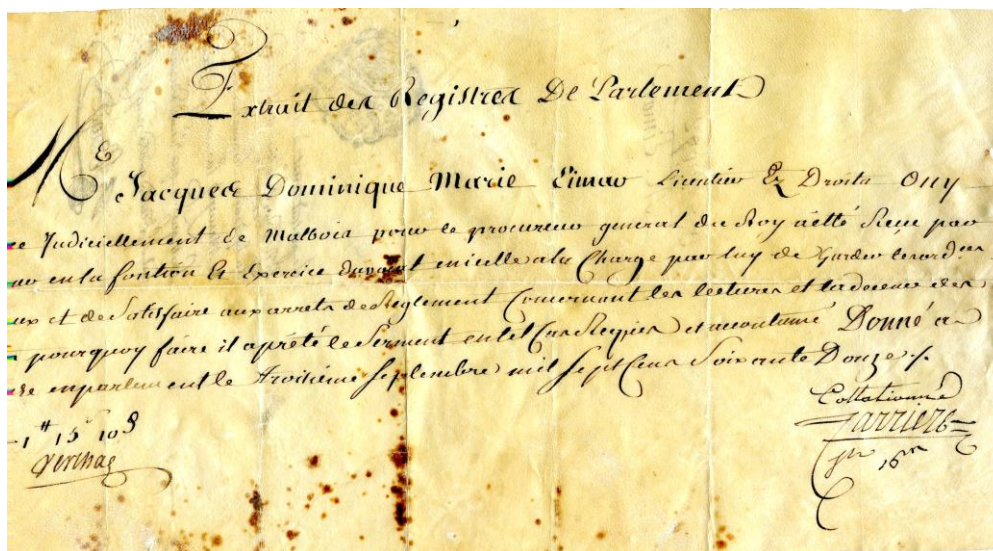 Extrait des Registres De Parlement
Me Jacques Dominique Marie Licentier Ez Droits Ouy
Judiciellement de Malbois pour le procureur general du Roy a été Receu par
en la fontion Et Exercice d'avocat en icelle a la Charge par luy de Garder les ord.ces
et de Satisfaire aux arrets de Reglement Concernant les lectures et la des
pourquoy faire il a prété le Serment en tel Cas Requis et accoutumé Donné a
en parlement le troisiéme Septembre mil Sept Cens Soixante Douze
Collationné
Jarriere
1# 15s 10d
Verlhac